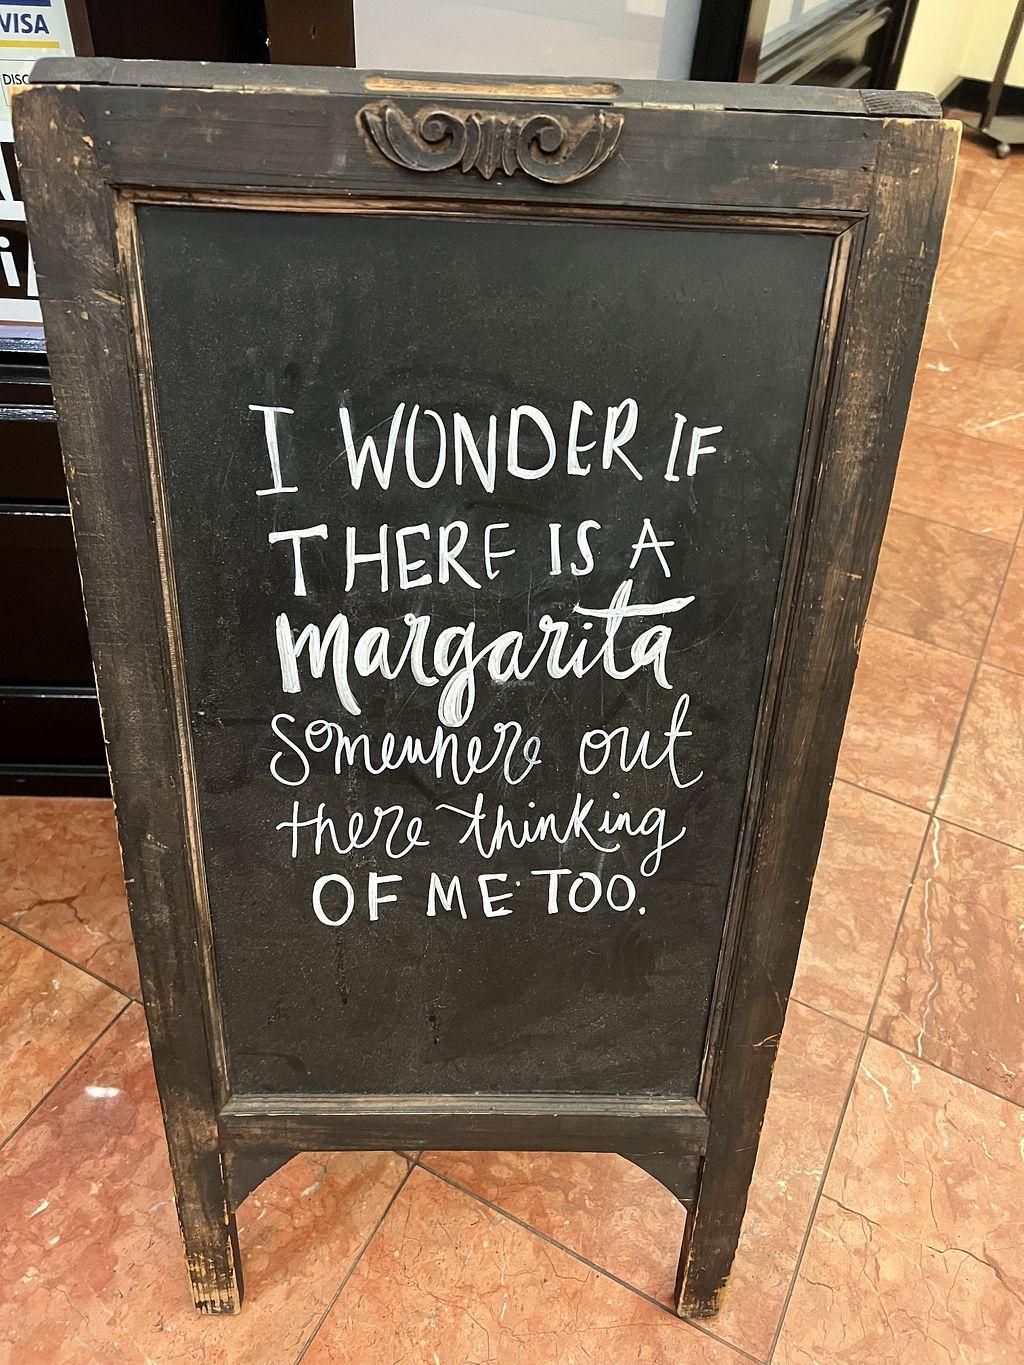 VISA
DISC
I WONDER IF
THERE IS A
margarita
somewhere out
there thinking
OF ME TOO.